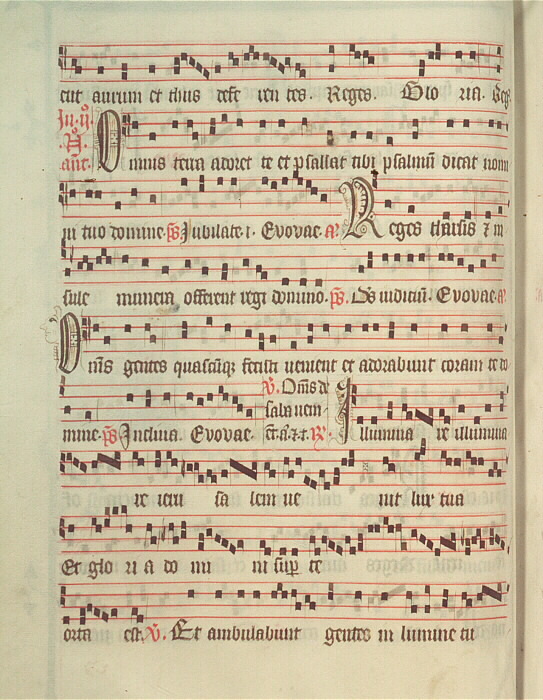 ent aurum et thus defe ren tes. Reges. Glo ria. Reg.
In. ii.
N.
ant. Omnis terra adoret te et psallat tibi psalmum dicat nomi
ni tuo domine. ps Iubilate. i. Evovae. a Reges tharsis et in
sule munera offerent regi domino. ps. Ds iudicium. Evovae. a
Oms gentes quascumq fecisti venient et adorabunt coram te do
mine. ps Inclina. Evovae
V. Oms de
saba veni
Illumina re illumina
re ieru sa lem ve nit lux tua
Et glo ri a do mi ni sup te
orta est. V. Et ambulabunt gentes in lumine tu